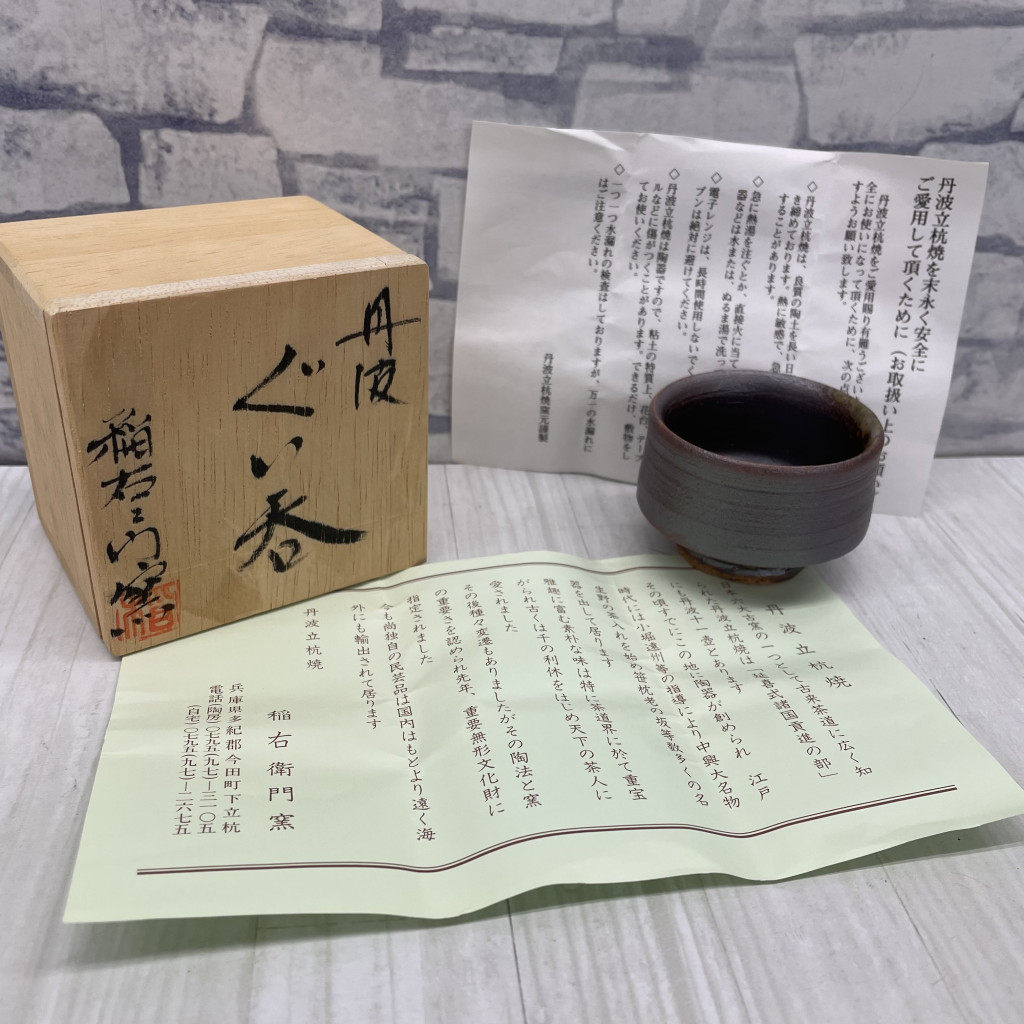 丹波
ぐい呑
稲右ェ門窯
丹波立杭焼を末永く安全に
ご愛用して頂くために（お取扱い上のお願い
丹波立杭焼をご愛用賜り有難うござい
全にお使いになって頂くために、次の点
すようお願い致します。
◇丹波立杭焼は、良質の陶土を長い日
き締めております。熱に敏感で、急
することがあります。
◇急に熱湯を注ぐとか、直接火に当て
器などは水または、ぬるま湯で洗っ
◇電子レンジは、長時間使用しないでく
ブンは絶対に避けてください。
◇丹波立杭焼は陶器ですので、粘土の特質上、花台、テーブ
ルなどに傷がつくことがあります。できるだけ、敷物をし
てお使いください。
◇一つ一つ水漏れの検査はしておりますが、万一の水漏れに
はご注意ください。
丹波立杭焼窯元謹製
丹波立杭焼
日本六大古窯の一つとして古来茶道に広く知
られた丹波立杭焼は「延喜式諸国貢進の部」
にも丹波十一壺とあります
その頃すでにこの地に陶器が創められ 江戸
時代には小堀遠州等の指導により中興大名物
生野の茶入れを始め笹枕老の坂等数多くの名
器を出して居ります
雅趣に富む素朴な味は特に茶道界に於て重宝
がられ古くは千の利休をはじめ天下の茶人に
愛されました
その後種々変遷もありましたがその陶法と窯
の重要さを認められ先年、重要無形文化財に
指定されました
今も尚独自の民芸品は国内はもとより遠く海
外にも輸出されて居ります
丹波立杭焼
稲右衛門窯
兵庫県多紀郡今田町下立杭
電話（陶房）〇七九五（九七）―三一〇五
（自宅）〇七九五（九七）―二六七五